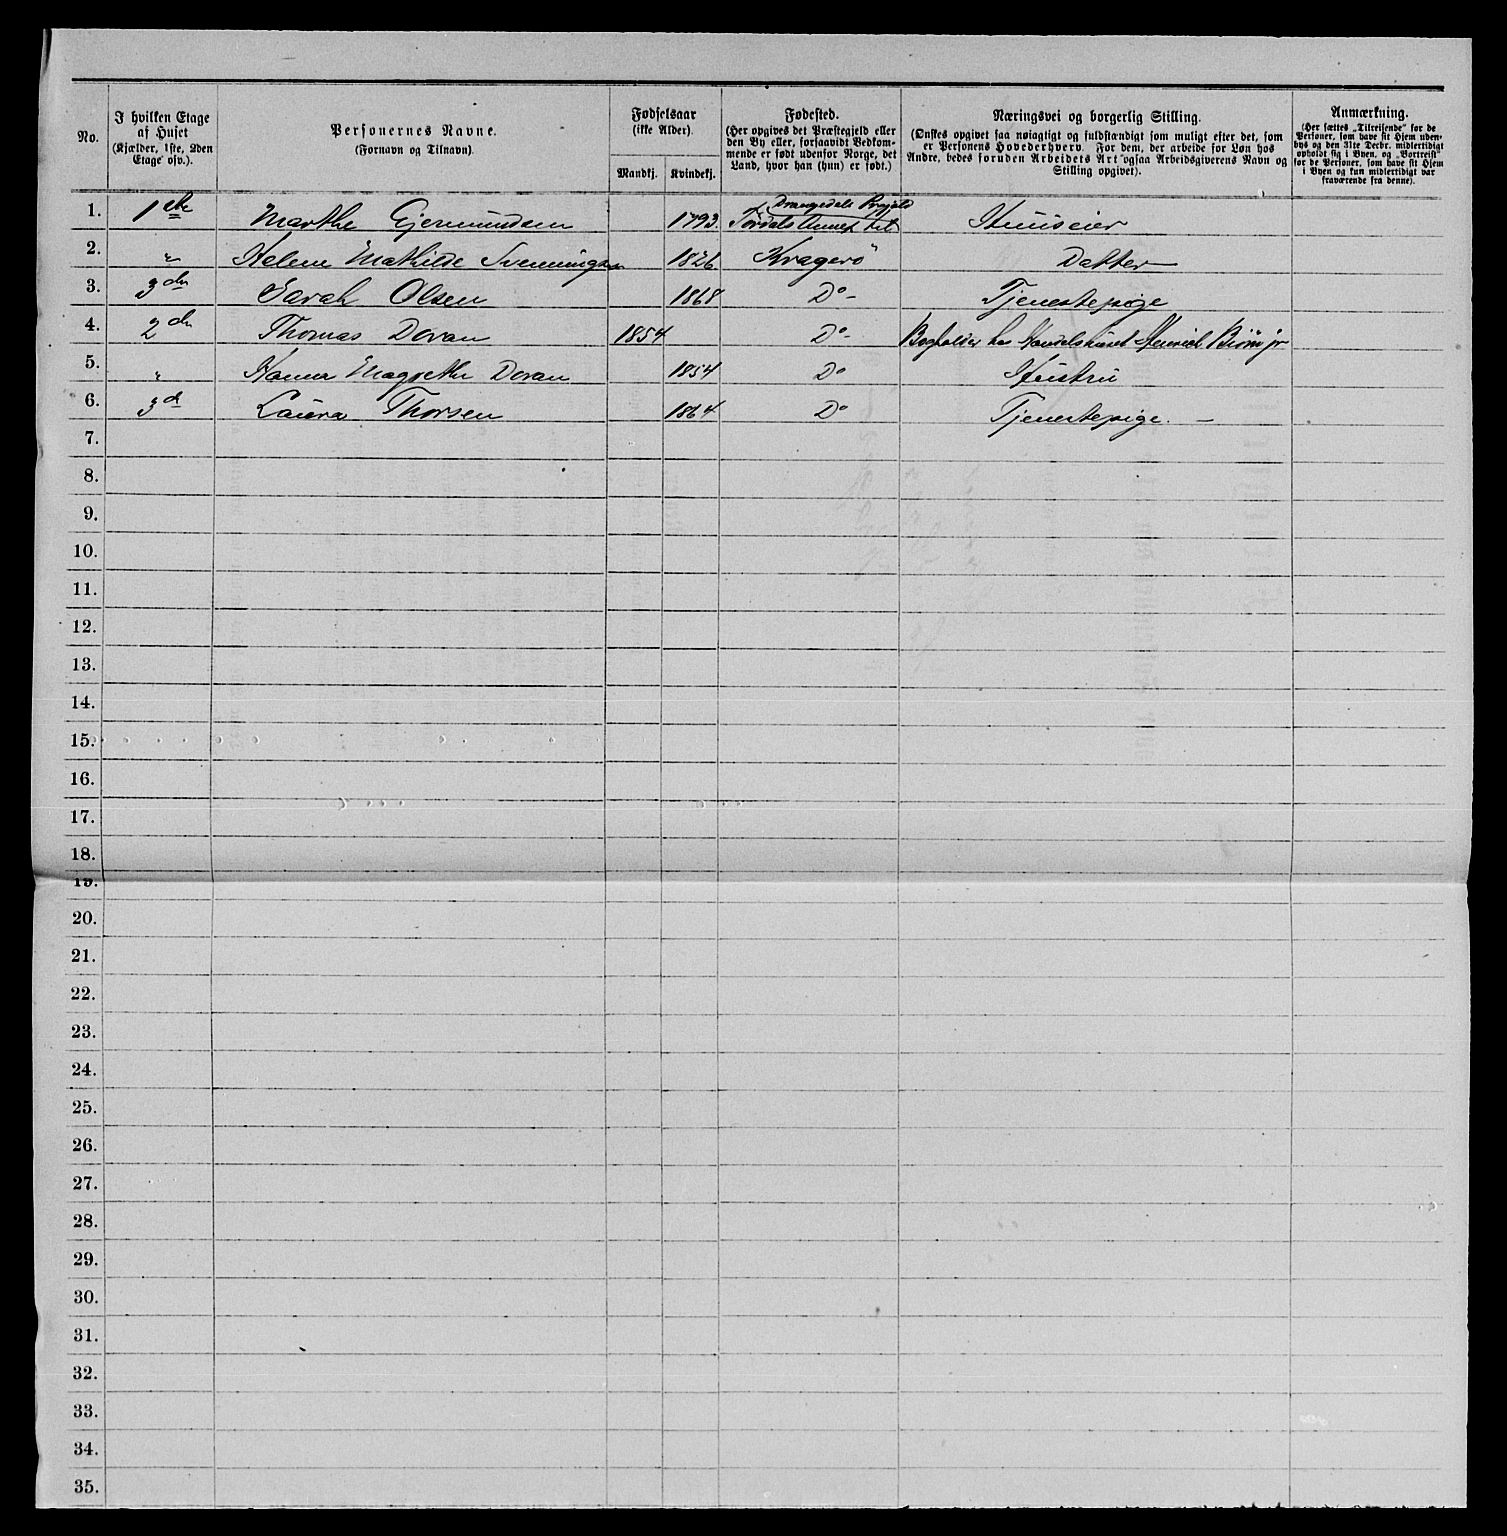 No.
I hvilken Etage
af Huset
(Kjælder, 1ste, 2den
Etage osv.).
Personernes Navne.
(Fornavn og Tilnavn).
Fødselsaar
(ikke Alder).
Mandkj. Kvindekj.
Fødested.
(Her opgives det Præstegjeld eller
den By eller, forsaavidt Vedkom-
mende er født udenfor Norge, det
Land, hvor han (hun) er født.)
Næringsvei og borgerlig Stilling.
(Ønskes opgivet saa nøiagtigt og fuldstændigt som muligt efter det, som
er Personens Hovederhverv. For dem, der arbeide for Løn hos
Andre, bedes foruden Arbeidets Art ogsaa Arbeidsgiverens Navn og
Stilling opgivet).
Anmærkning.
(Her sættes „Tilreisende“ for de
Personer, som have sit Hjem uden-
bys og den 31te Decbr. midlertidigt
opholdt sig i Byen, og „Bortreist“
for de Personer, som have sit Hjem
i Byen og kun midlertidigt var
fraværende fra denne).
1. 1ste Marthe Gjermundsen 1793. Drangedals Prgjeld Tørdals Annex til Huuseier
2. " Helene Mathilde Svenningsen 1826 Kragerö Datter
3. 3de Sarah Olsen 1868 Do - Tjenestepige
4. 2den Thomas Doran 1854 Do - Bogholder hos Handelshuset Henrich Biörn jr
5. " Hanna Doran 1854 Do Hustru
6. 3d Laura Thorsen 1864 Do Tjenestepige. -
7.
8.
9.
10.
11.
12.
13.
14.
15.
16.
17.
18.
19.
20.
21.
22.
23.
24.
25.
26.
27.
28.
29.
30.
31.
32.
33.
34.
35.